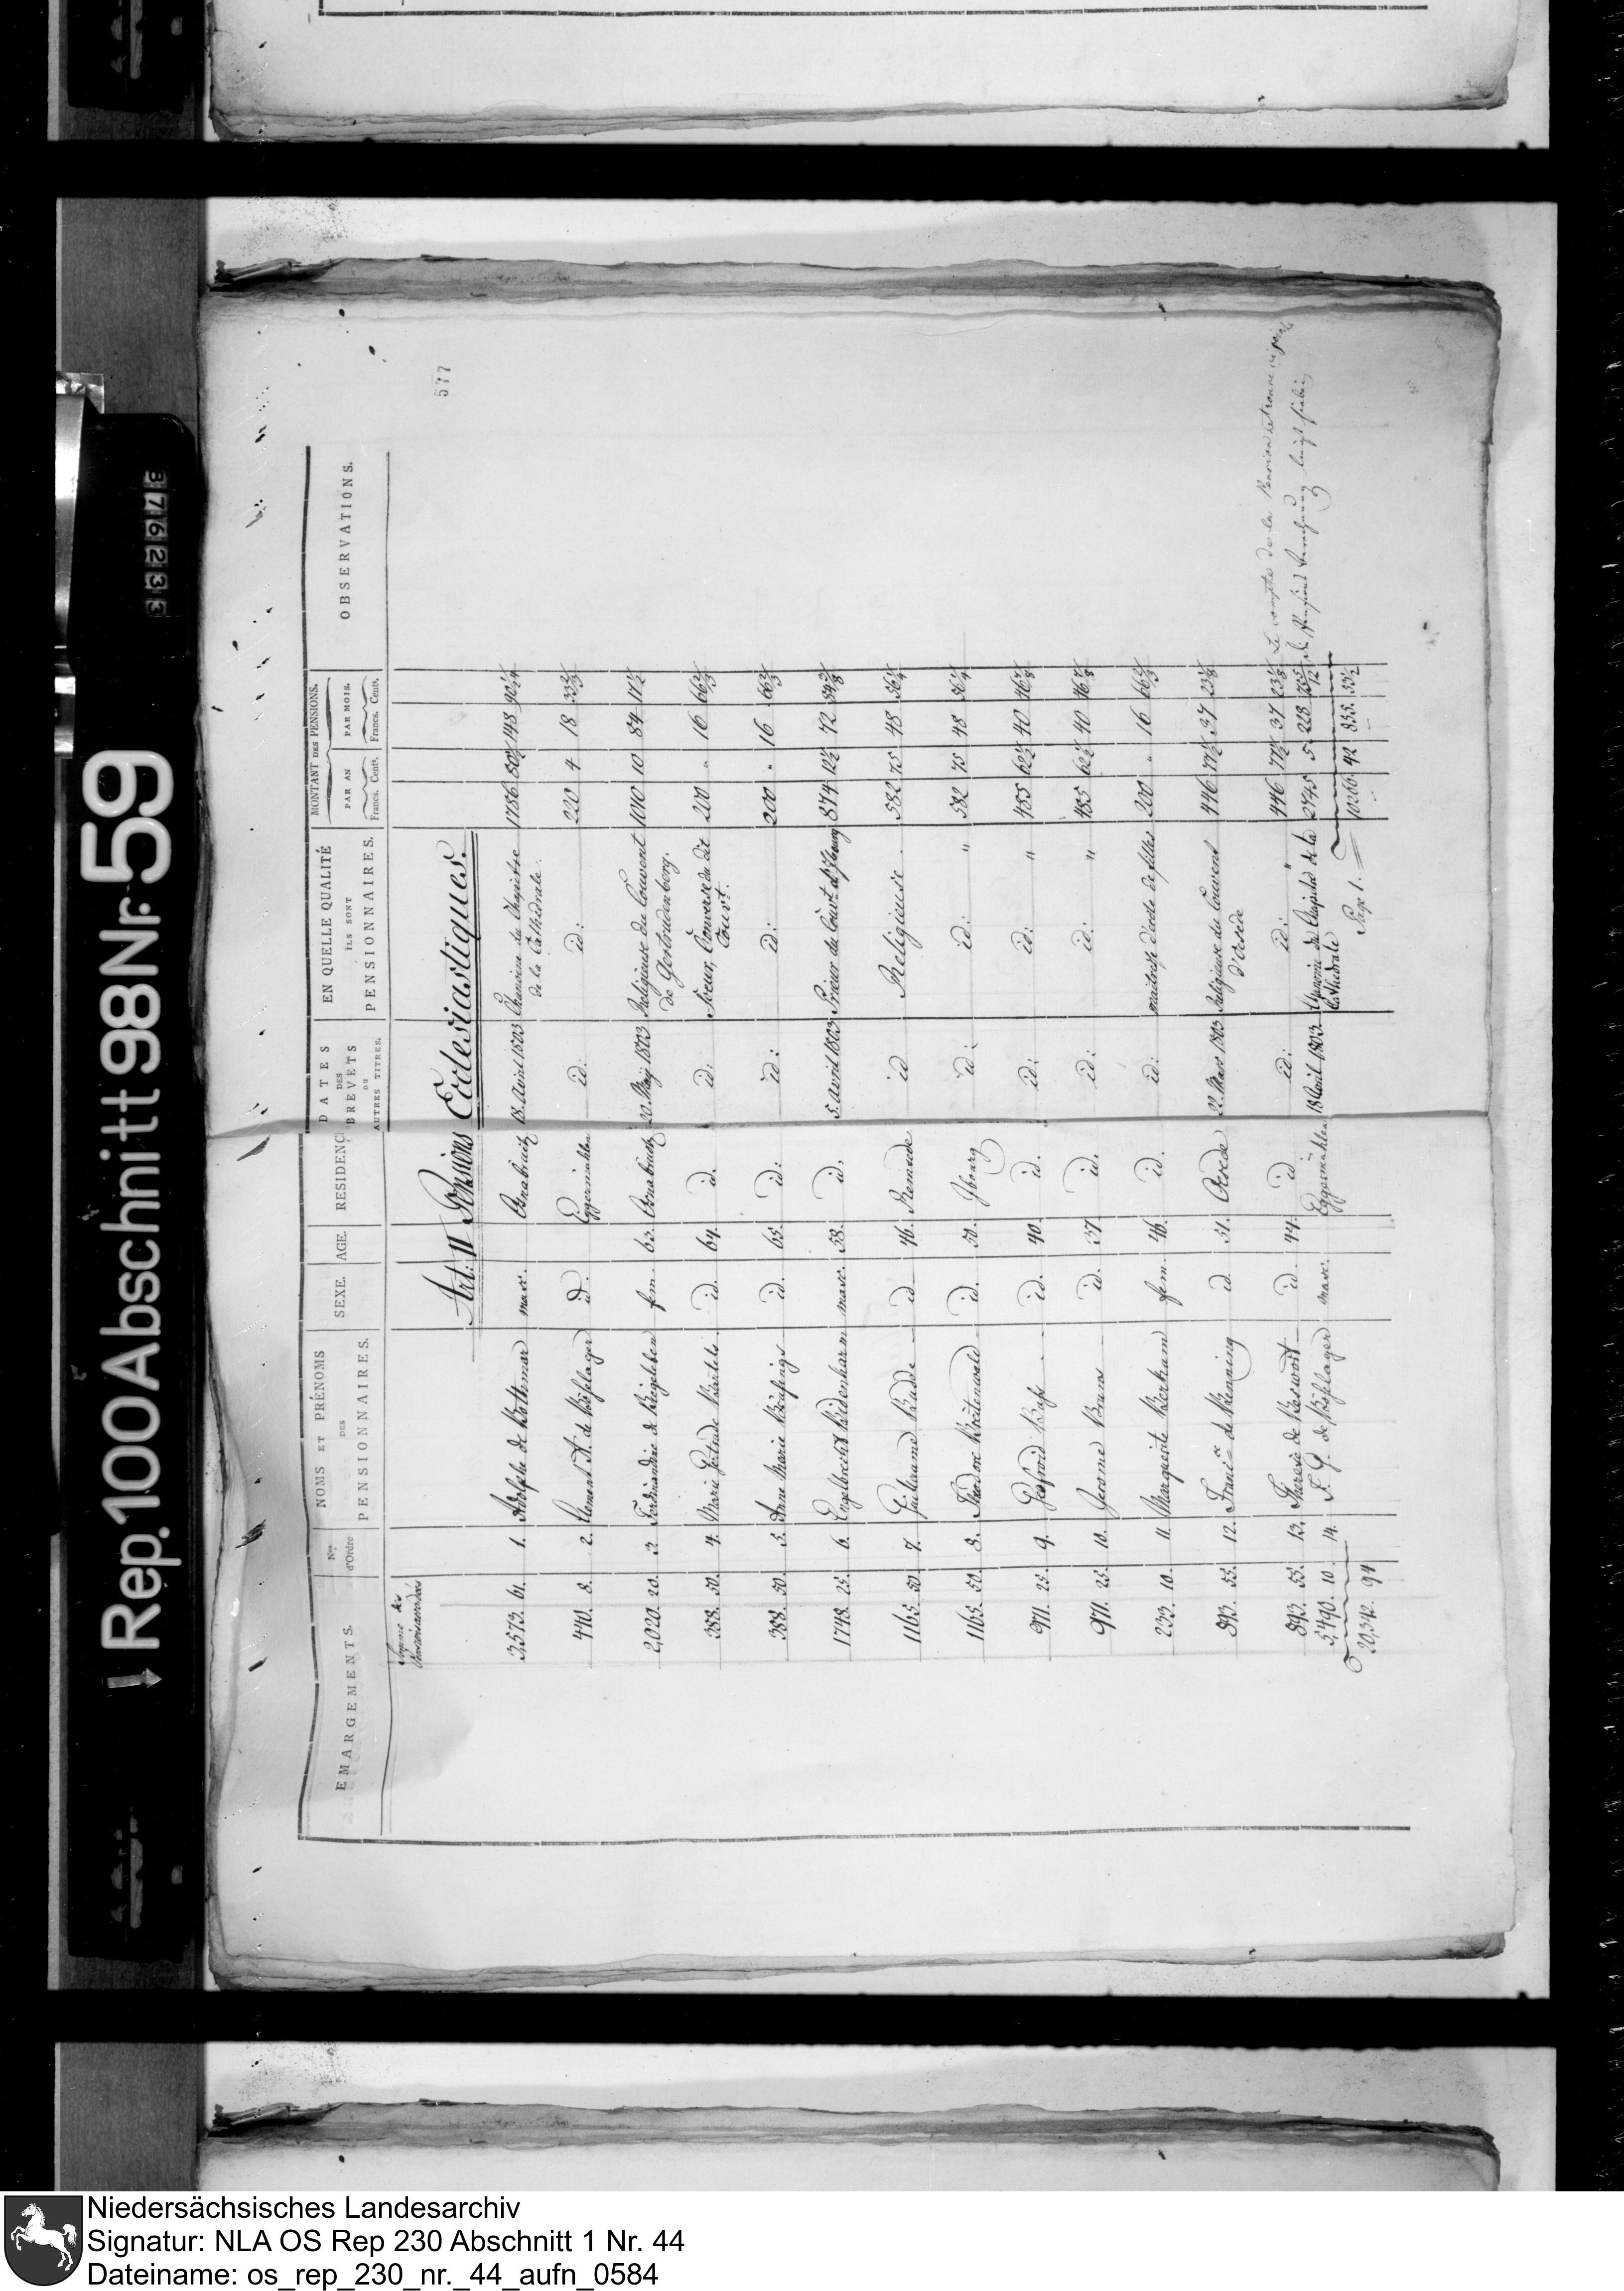 Rep. 100 A Abschnitt 98 Nr. 59
876233
577
EMARGEMENTS.
Nos d'Ordre
NOMS ET PRÉNOMS DES PENSIONNAIRES.
SEXE.
AGE.
RESIDENCE
DATES DES BREVETS OU AUTRES TITRES.
EN QUELLE QUALITÉ ILS SONT PENSIONNAIRES.
MONTANT DES PENSIONS.
PAR AN
Francs. Cents.
PAR MOIS.
Francs. Cents.
OBSERVATIONS.
Art: II Pensions Ecclesiastiques.
3,573. 61. 1. Adolphe de Bothmar masc. Osnabruck 18. Avril 1803 Chanoine du Chapitre de la Cathédrale. 1786 80½ 148 90
440. 8. 2. Clement A. de Böselager id. Eggermühlen id: id: 220 4 18 33⅔
2,020. 20. 3. Ferdinandine de Riegeleben fem. 63. Osnabruck 20. May 1803 Religieuse du Couvent de Gertrudenberg. 1010 10 84 17½
388. 50. 4. Marie Gertrude Bartels id. 64. id. id: Soeur Converse du dit Couvt. 200 " 16 66⅔
388. 50. 5. Anne Marie id. 65. id: id: id: 200 " 16 66⅔
1748. 25. 6. Engelbrecht Bidenharn masc. 58. id. 5. Avril 1803 Prieur du Couvt. d'Ybourg 874 12½ 72 84⅜
1165. 50 7. Guilaume Budde id 46. Remsede id Religieuse. 582 75 48 56¼
1165. 50. 8. Theodore Breitenwald id. 50. Ybourg id: id: " 582 75 48 56¼
971. 25. 9. Geofroid id. 40. id. id: id: " 485 62½ 40 46⅞
971. 25. 10. Jerome Bruns id. 37. id. id: id: " 485 62½ 40 46⅞
233. 10. 11. Marguerite Bertram fem. 46. id. id: maitresse d'ecole de filles 200 " 16 66⅔
893. 55. 12. Franc.se de Benning id 51. Oesede 22. Mars 1803 Religieuse du Couvent d'Oesede 446 77½ 37 23
893. 55. 13. Therese de id. 44. id id: id: " 446 77½ 37 23
5,490. 10. 14. F. G. de Böselager masc. Eggermühlen 18 Avril 1803. Chanoine du Chapitre de la Cathedrale 2745 5 228 75 5/12
Le compte de la Pension se trouve
20,342. 94
Page 1. 10266. 42 855. 53½
Niedersächsisches Landesarchiv
Signatur: NLA OS Rep 230 Abschnitt 1 Nr. 44
Dateiname: os_rep_230_nr._44_aufn_0584